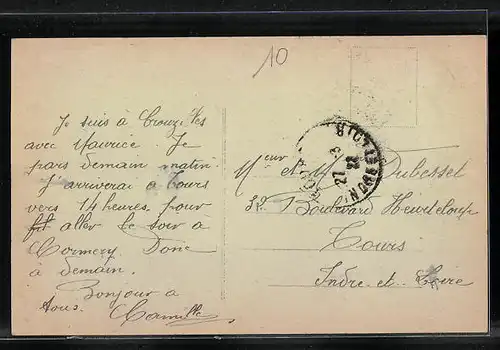 10
Je suis à Crouzilles
avec Maurice Je
pars demain matin.
J'arriverai à Tours
vers 14 heures. pour
aller le soir à
Cormery Donc
à demain.
Bonjour à
tous. Camille
27 - 3
22
Mʳ et Mᵐᵉ Dubesset
32 Boulevard Heurteloup
Tours
Indre-et-Loire